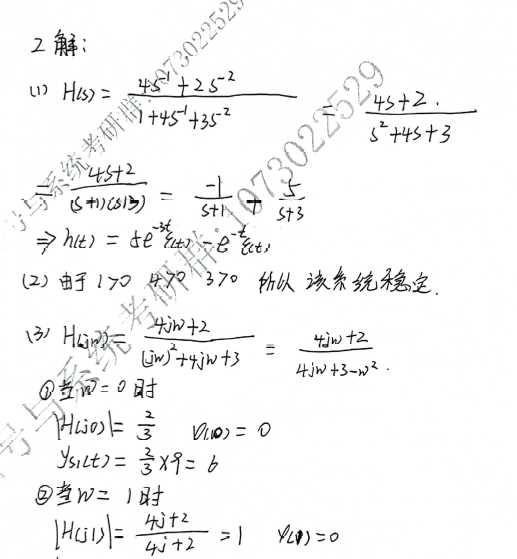 2 解:
(1) H(s) = (4s⁻¹+2s⁻²)/(1+4s⁻¹+3s⁻²) = (4s+2)/(s²+4s+3)
= (4s+2)/((s+1)(s+3)) = -1/(s+1) + 5/(s+3)
⇒ h(t) = 5e^{-3t}ε(t) - e^{-t}ε(t)
(2) 由于 1>0 4>0 3>0 所以 该系统稳定.
(3) H(jw) = (4jw+2)/((jw)²+4jw+3) = (4jw+2)/(4jw+3-w²).
① 当w=0时
|H(j0)| = 2/3 φ(0) = 0
Ys1(t) = 2/3×9 = 6
② 当w=1时
|H(j1)| = (4j+2)/(4j+2) = 1 φ(1)=0
号与系统考研群:1073022529